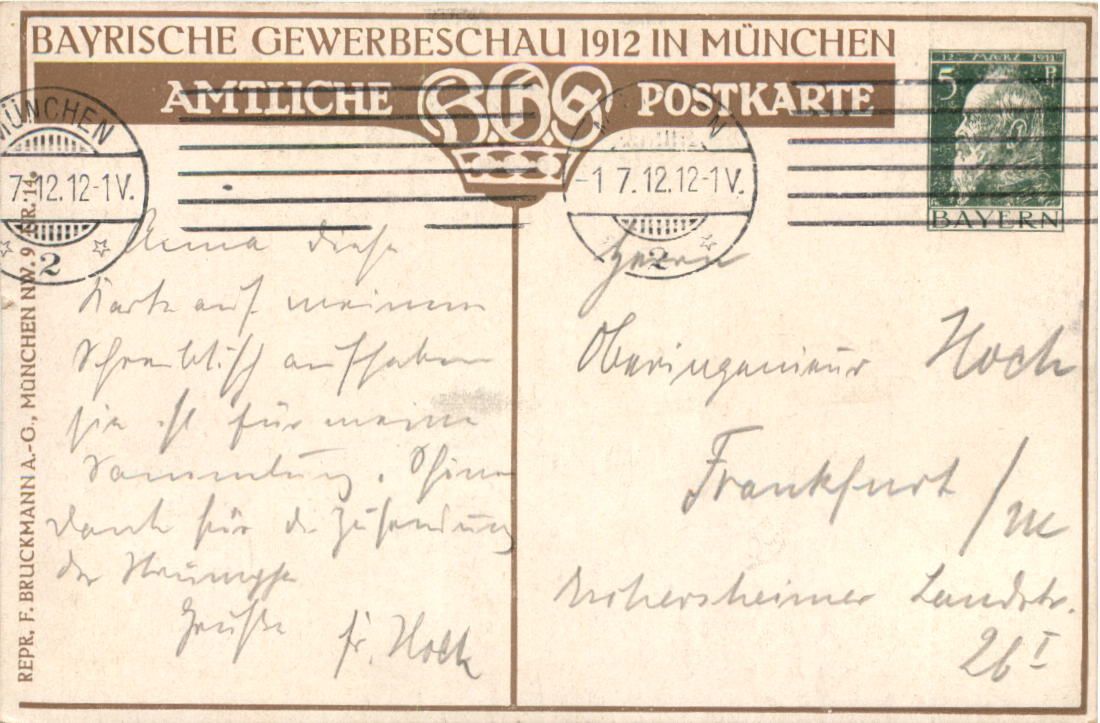 BAYRISCHE GEWERBESCHAU 1912 IN MÜNCHEN
AMTLICHE B.G.S. POSTKARTE
12. MÄRZ 1911
5 P
BAYERN
MÜNCHEN
7.12.12-1V.
2
-1 7.12.12-1V.
2
REPR. F. BRUCKMANN A.-G., MÜNCHEN NW. 9. NR. 14.
Anna diese
Karte auf meinem
Schreibtisch aufheben
sie ist für meine
Sammlung.
Dank für die Zusendung
der Strümpfe
Grüße
Fr. Hoch
Herrn
Oberingenieur Hoch
Frankfurt /M
Landstr.
26 I